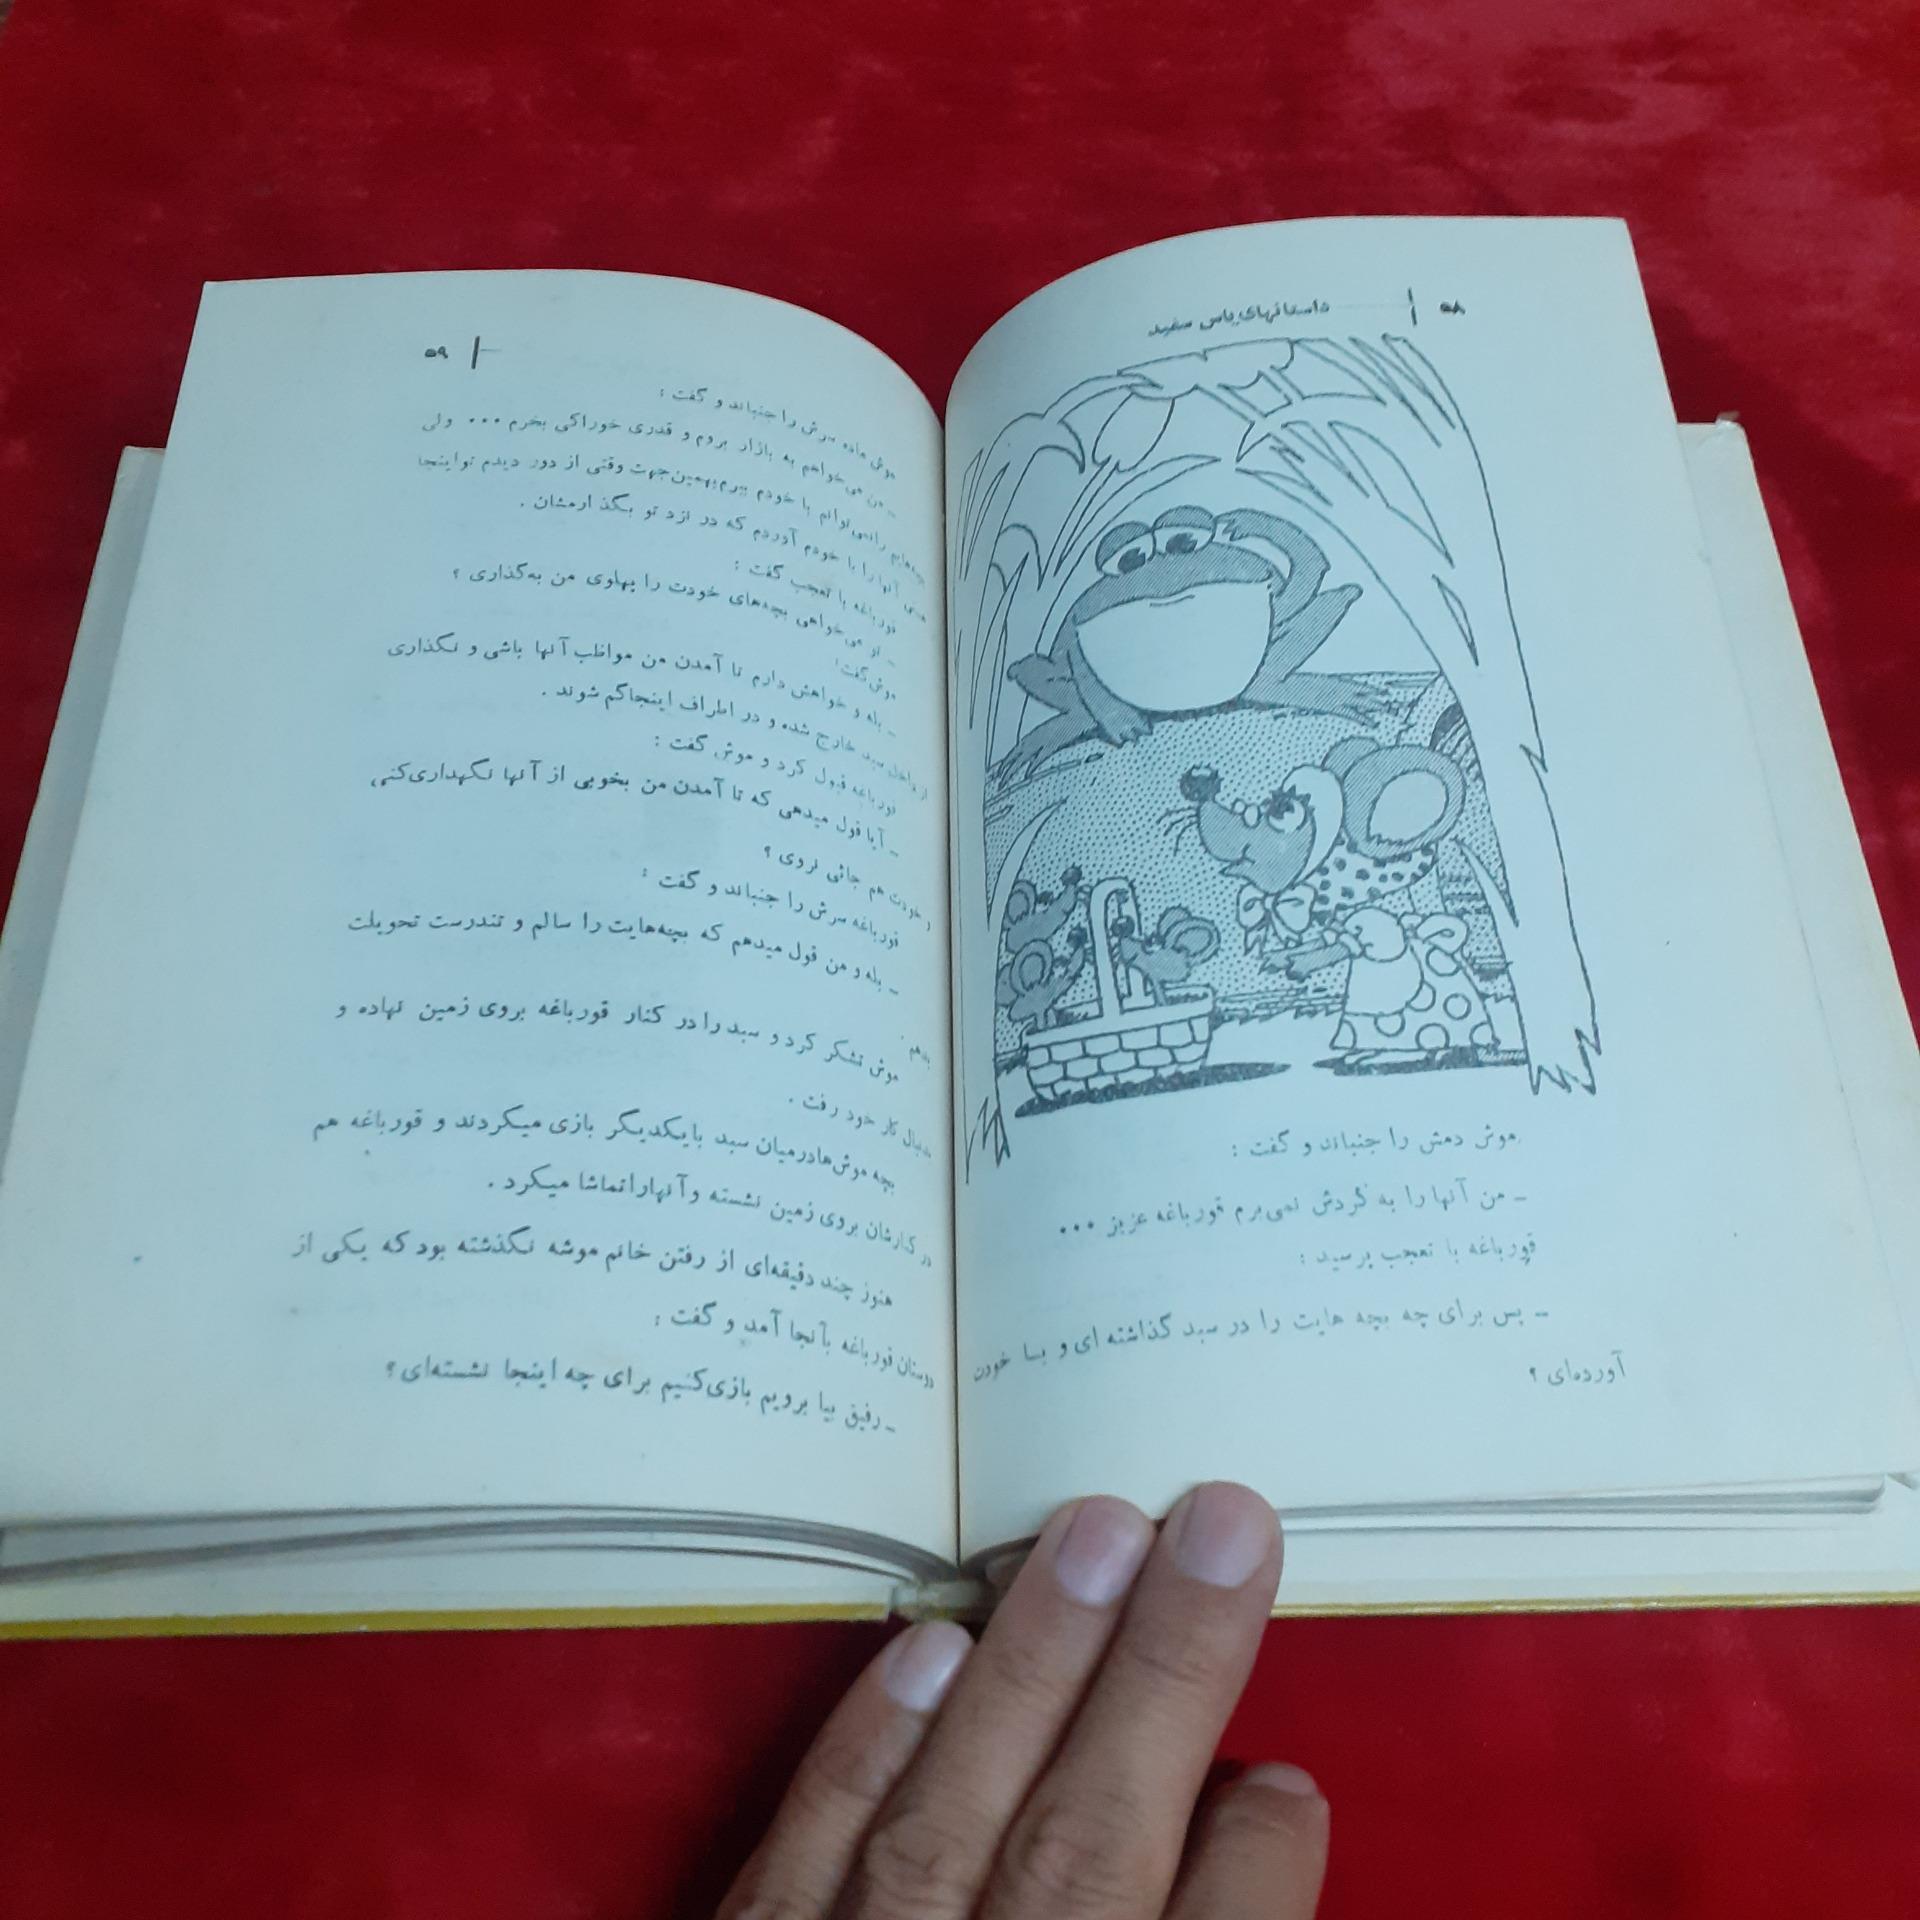 ۵۸
داستانهای یاس سفید
موش دمش را جنباند و گفت :
ـ من آنها را به گردش نمی‌برم قورباغه عزیز ...
قورباغه با تعجب پرسید :
ـ پس برای چه بچه هایت را در سبد گذاشته ای و بسا خودت
آورده‌ای ؟
۵۹
موش ماده سرش را جنباند و گفت :
ـ من می‌خواهم به بازار بروم و قدری خوراکی بخرم ... ولی
بچه‌هایم رانمی‌توانم با خودم ببرم‌بهمین‌جهت وقتی از دور دیدم تواینجا
هستی آنها را با خودم آوردم که در نزد تو بگذارمشان .
قورباغه با تعجب گفت :
ـ تو می‌خواهی بچه‌های خودت را پهلوی من به‌گذاری ؟
موش‌گفت:
ـ بله و خواهش دارم تا آمدن من مواظب آنها باشی و نگذاری
از داخل سبد خارج شده و در اطراف اینجاگم شوند .
قورباغه قبول کرد و موش گفت :
ـ آیا قول میدهی که تا آمدن من بخوبی از آنها نگهداری‌کنی
و خودت هم جائی نروی ؟
قورباغه سرش را جنباند و گفت :
ـ بله و من قول میدهم که بچه‌هایت را سالم و تندرست تحویلت
بدهم .
موش تشکر کرد و سبد را در کنار قورباغه بروی زمین نهاده و
بدنبال کار خود رفت .
بچه موش‌هادرمیان سبد بایکدیگر بازی میکردند و قورباغه هم
در کنارشان بروی زمین نشسته وآنهاراتماشا میکرد .
هنوز چند دقیقه‌ای از رفتن خانم موشه نگذشته بود که یکی از
دوستان قورباغه بآنجا آمد و گفت :
ـ رفیق بیا برویم بازی‌کنیم برای چه اینجا نشسته‌ای ؟